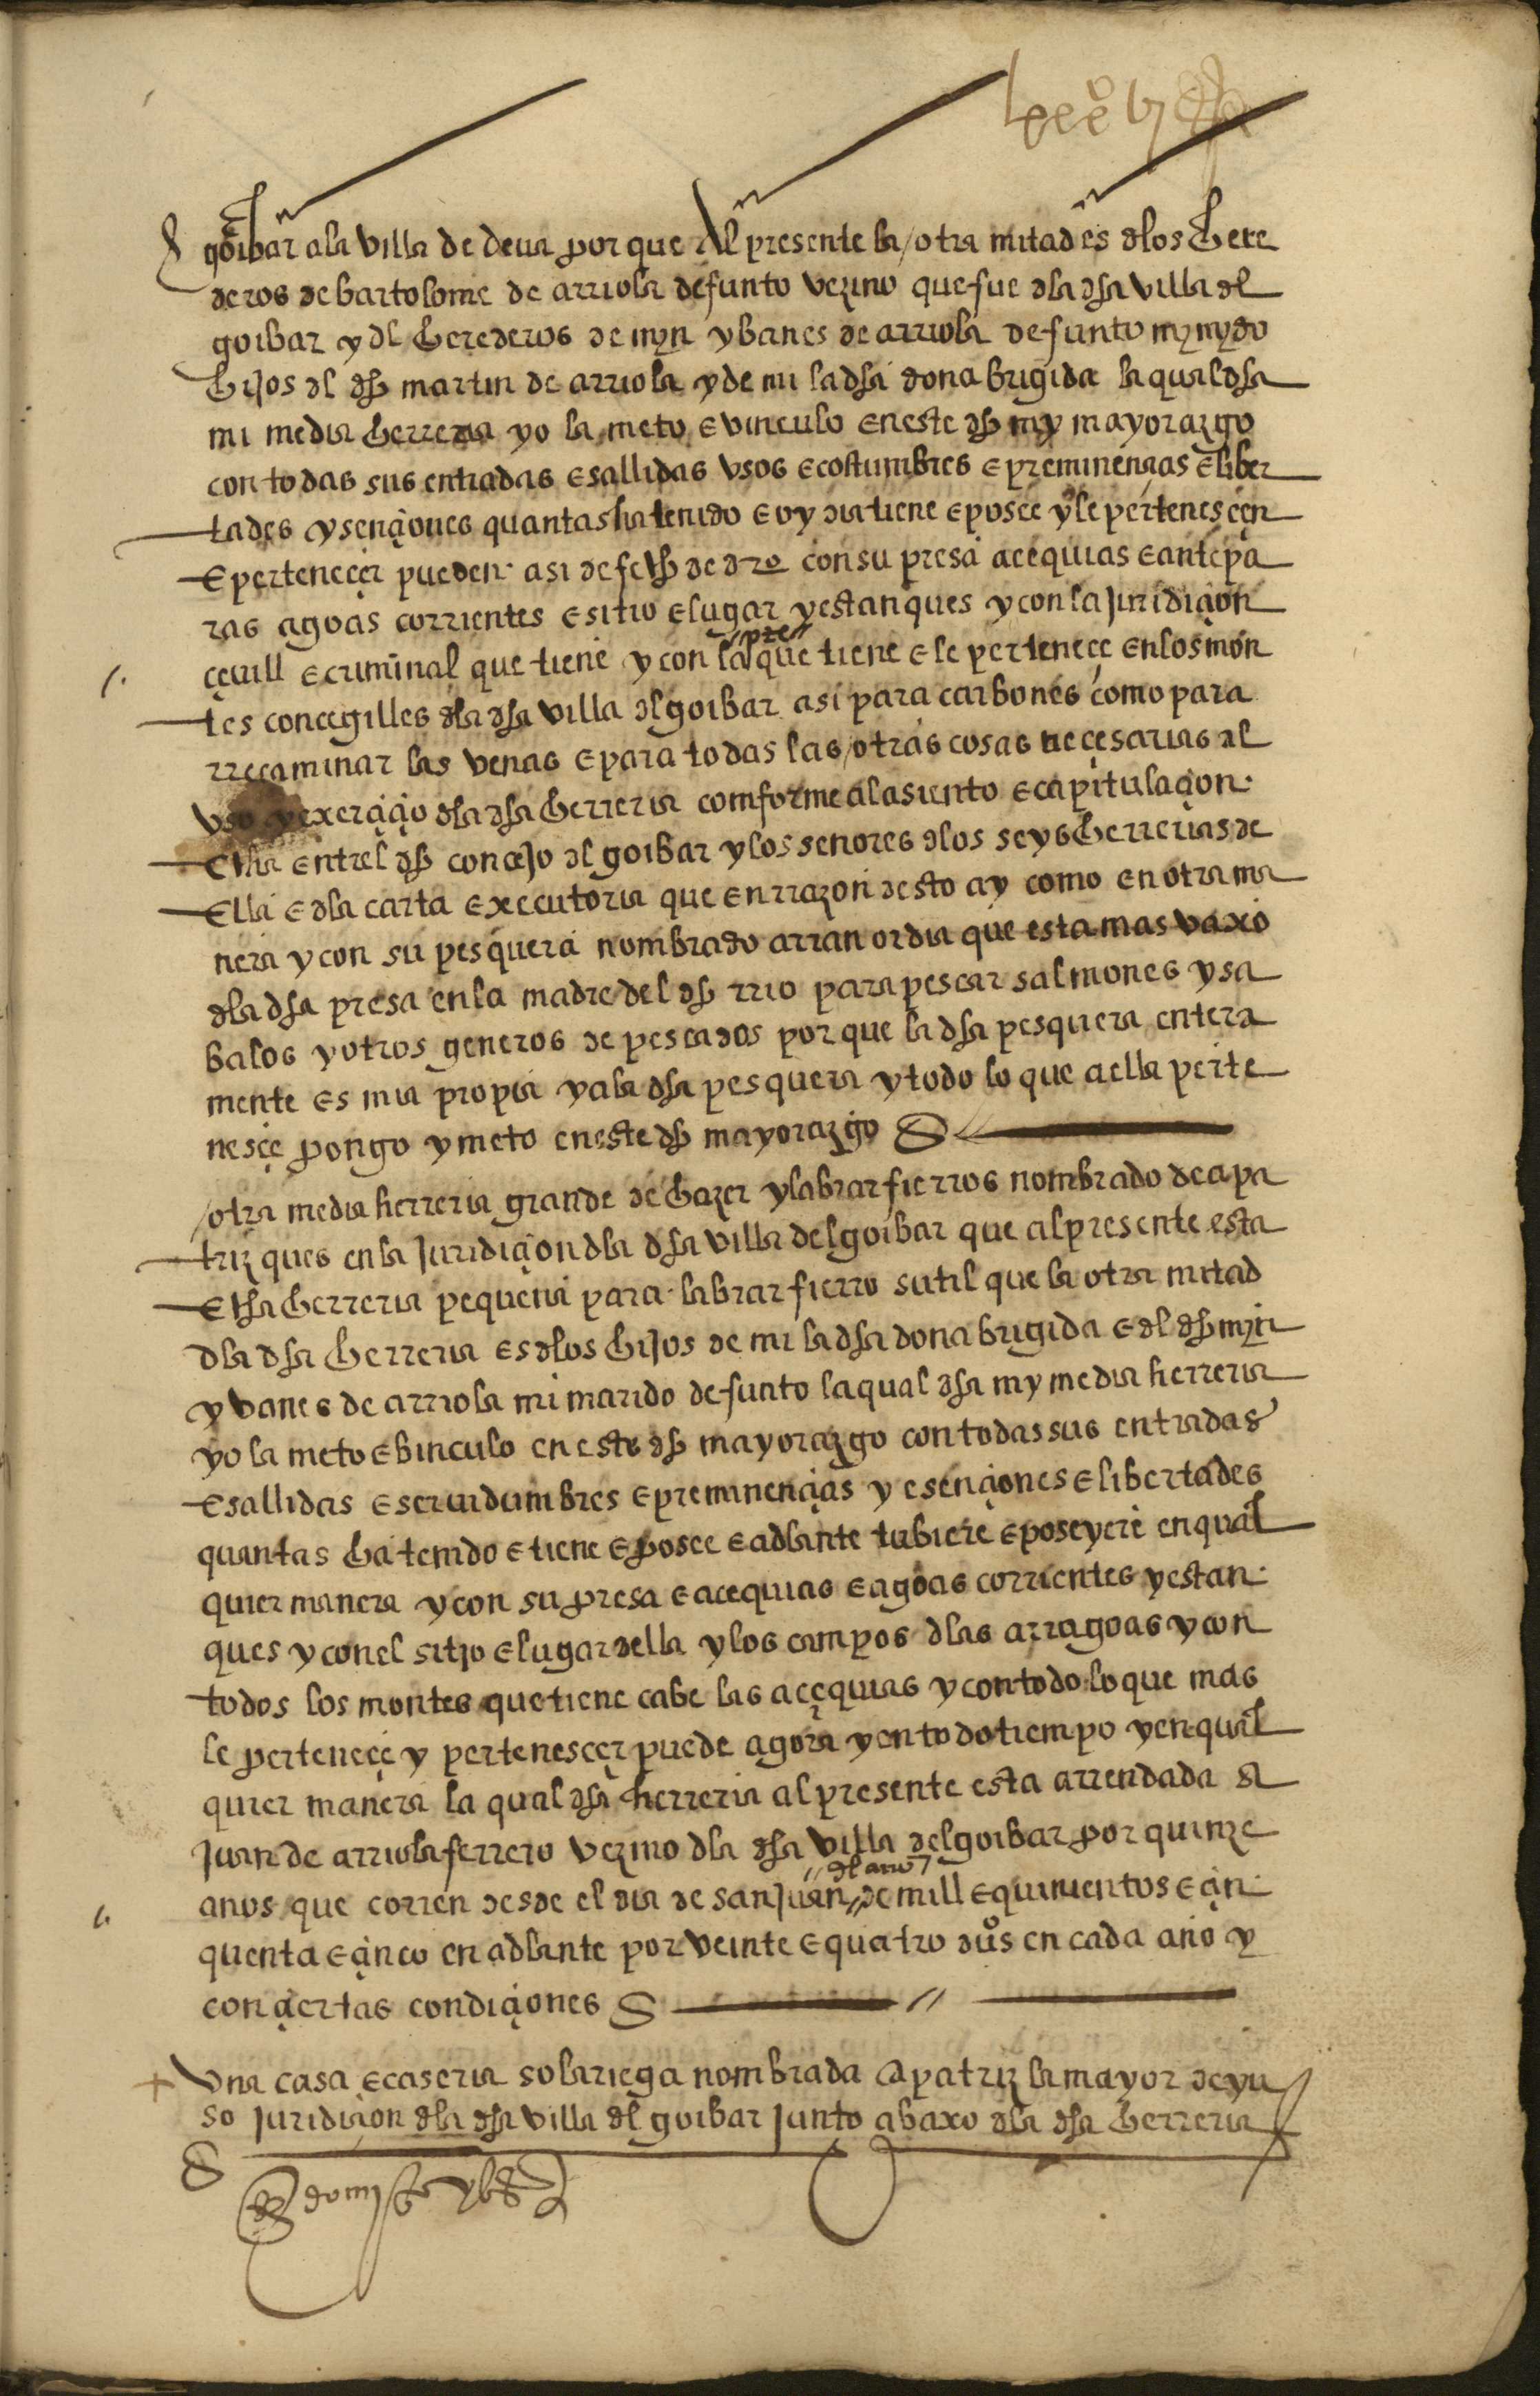 goibar a la villa de deua por que Al presente la / otra mitad es dlos here
deros de bartolome de arriola defunto vezino que fue dla dha villa del
goibar y dl herederos de mjn ybanes de arriola defunto mj mjdo
hijos dl dho martin de arriola y de mi la dha dona brigida la qual dha
mi media herreria yo la meto e vinculo en este dho my mayorazgo
con todas sus entradas e sallidas vsos e costumbres e preminençias e liber
tades y sençiones quantas ha tenido e oy dia tiene e posee y le pertenesçen
e pertenecer pueden asi de fecho de dro con su presa acequias e antepa
ras agoas corrientes e sitio e lugar y estanques y con la juridiçion
çeuill e criminal que tiene y con la que tiene e le perteneçe en los mon
tes concegilles dla dha villa del goibar asi para carbones como para
rrecaminar las venas e para todas las / otras cosas neçesarias al
vso y exerçiçio dla dha herreria comforme al asiento e capitulaçion
echa entrel dho concejo del goibar y los señores dlos seys herrerias de
ella e dla carta executoria que en rrazon desto ay como en otra ma
nera y con su pesquera nombrado arranordia que esta mas vaxo
dla dha presa en la madre del dho rrio para pescar salmones y sa
balos y otros generos de pescados por que la dha pesquera entera
mente es mia propia y a la dha pesquera y todo lo que a ella perte
nesçe pongo y meto en este dho mayorazgo
/ otra media herreria grande de hazer y labrar fierros nombrado de apa
triz ques en la juridiçion dla dha villa delgoibar que al presente esta
echa herreria pequena para labrar fierro sutil que la otra mitad
dla dha herreria es dlos hijos de mi la dha dona brigida e dl dho mjn
yvanes de arriola mi marido defunto la qual dha my media herreria
yo la meto e binculo en este dho mayorazgo con todas sus entradas
e sallidas e seruidumbres e preminençias y esençiones e libertades
quantas ha tenido e tiene e posee e adlante tubiere e poseyere en qual
quier manera y con su presa e acequias e agoas corrientes y estan
ques y con el sitio e lugar della y los campos dlas arragoas y con
todos los montes que tiene cabe las açequias y con todo lo que mas
le perteneçe y pertenesçer puede agora y en todo tiempo y en qual
quier manera la qual dha herreria al presente esta arrendada a
Juan de arriola ferrero vezino dla dha villa delgoibar por quinze
anos que corren desde el dia de san Juan dl ano de mill e quinientos e çin
quenta e çinco en adlante por veinte e quatro dus en cada año y
con çiertas condiçiones
Vna casa e caseria solariega nombrada apatriz la mayor de yu
so juridiçion dla dha villa del goibar junto abaxo dla dha herreria